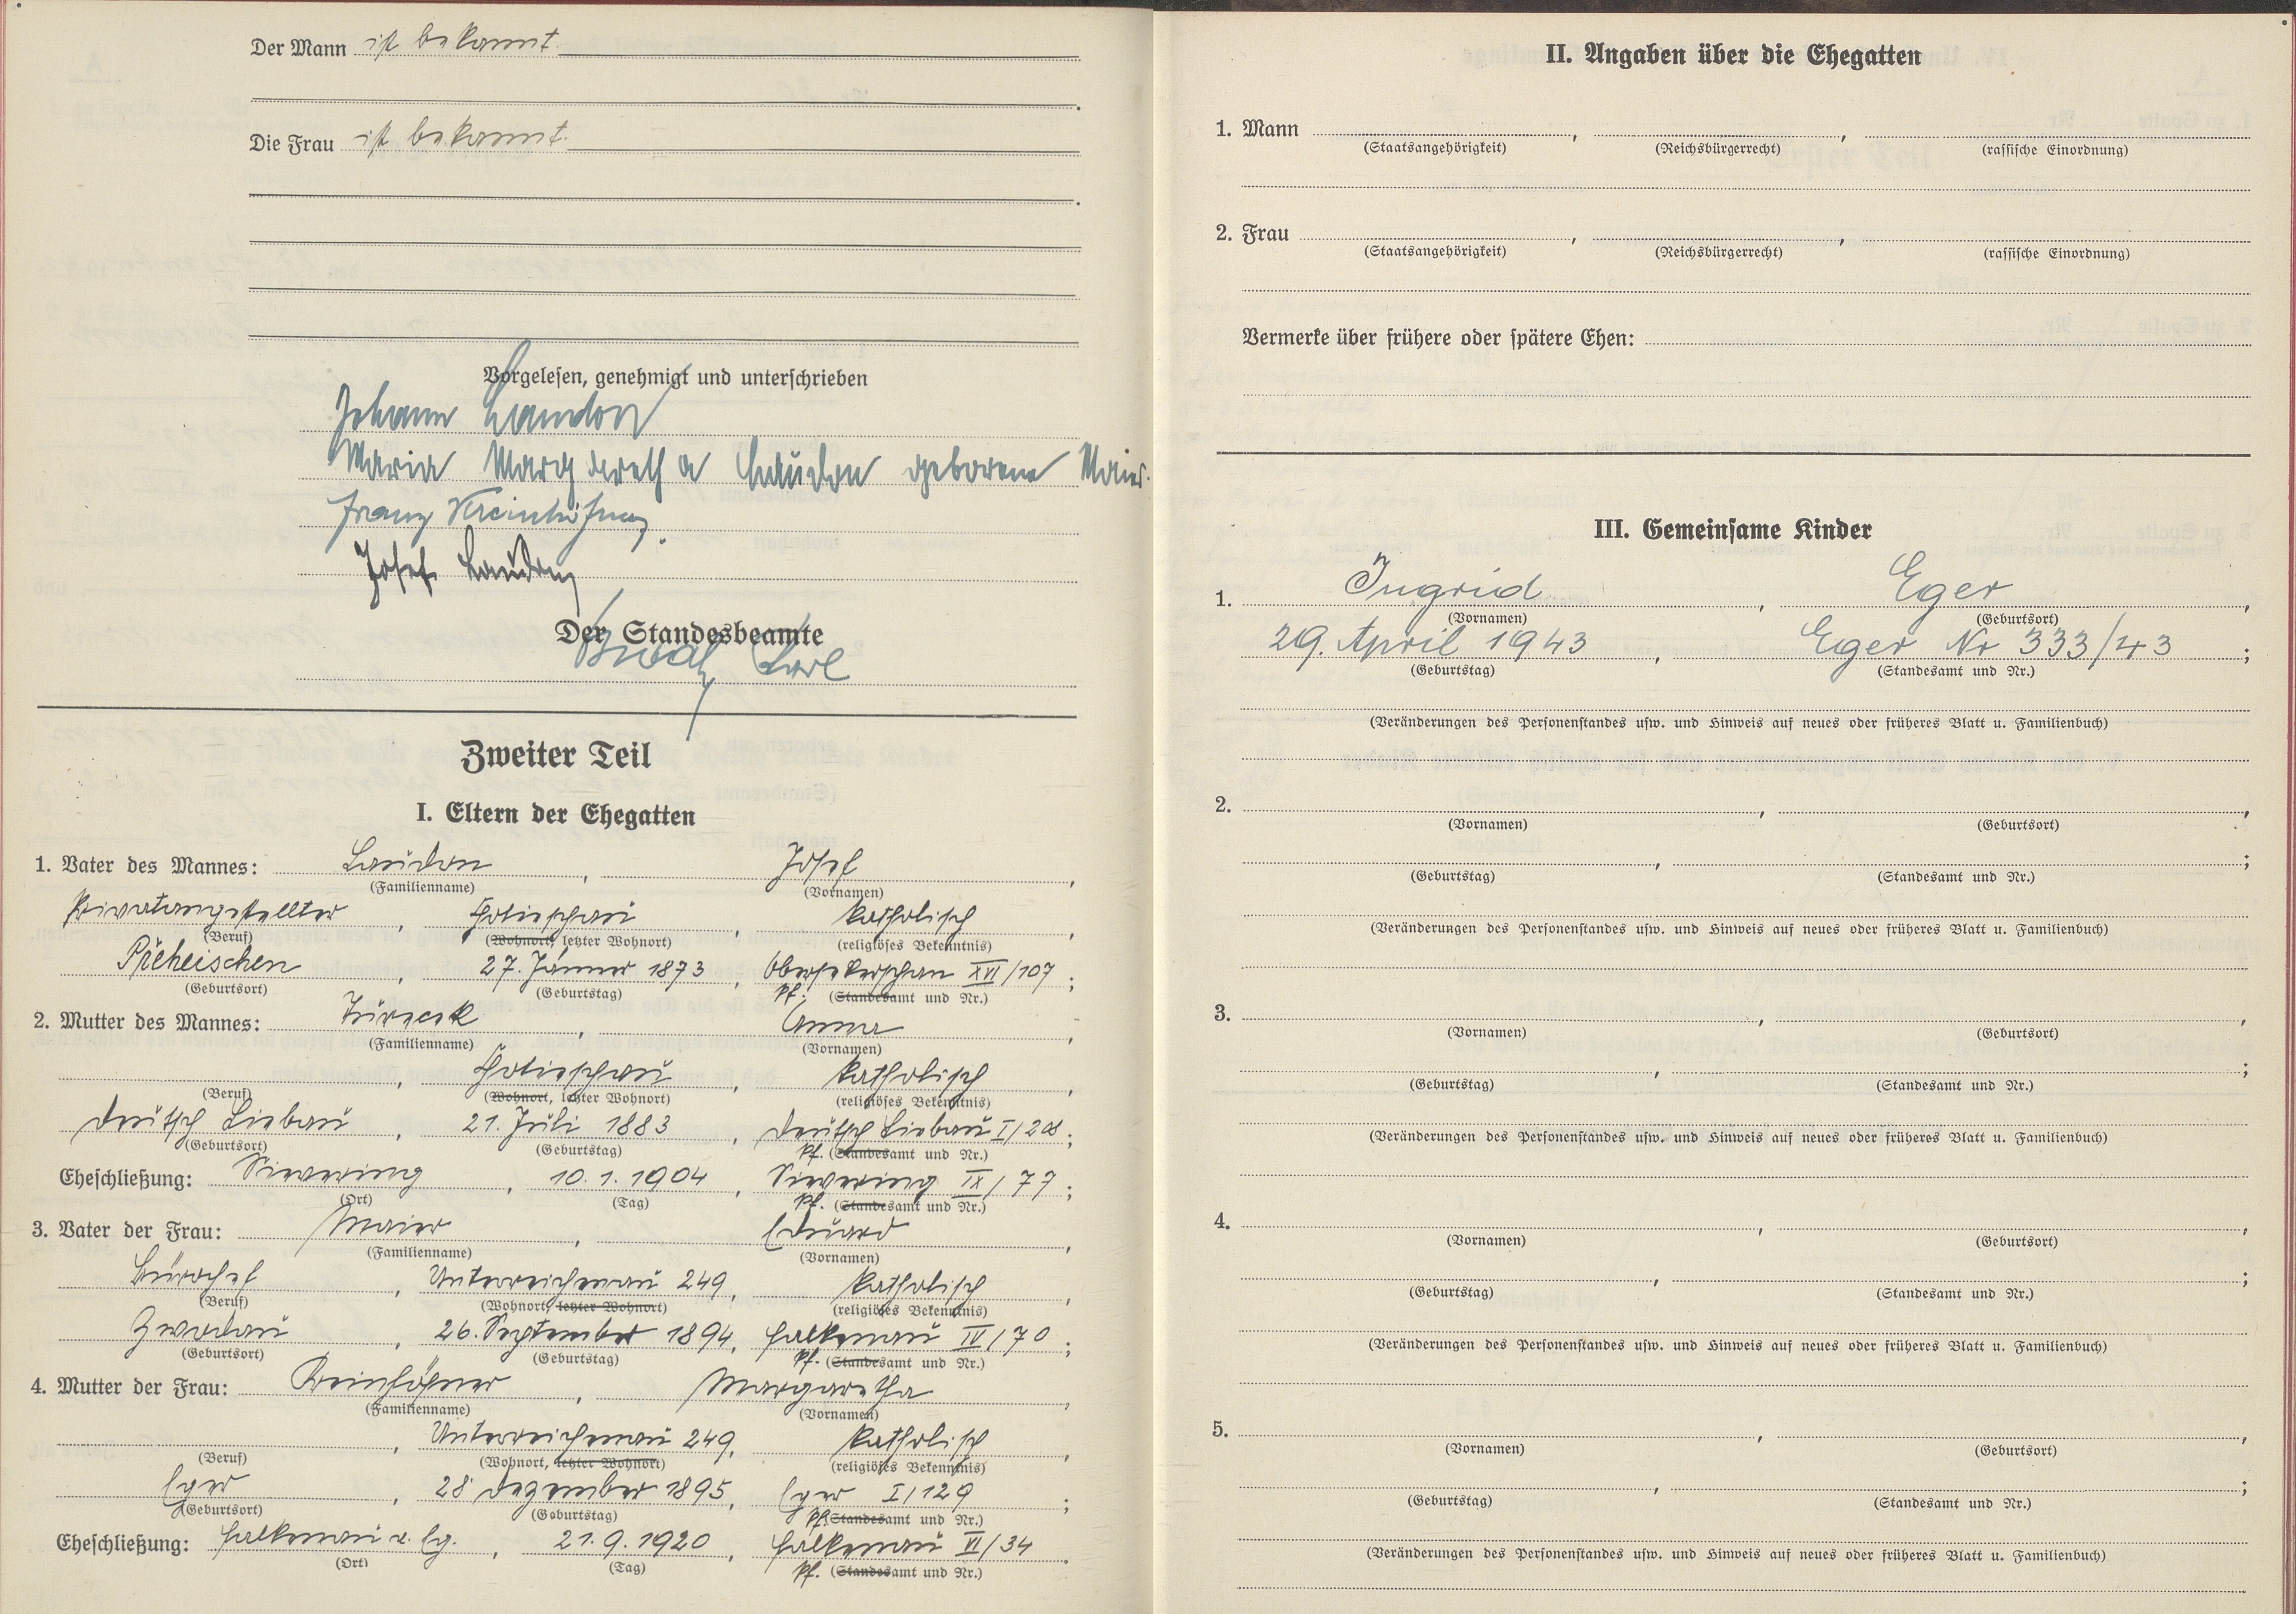 Der Mann ist bekannt.
Die Frau ist bekannt.
Vorgelesen, genehmigt und unterschrieben
Johann Laudon
Maria Margareth a Laudon geborene Maier.
Franz
Josef Laudon
Der Standesbeamte
Karl
Zweiter Teil
I. Eltern der Ehegatten
1. Vater des Mannes: Laudon, Josef,
(Familienname) (Vornamen)
Privatangestellter, Chotieschau, katholisch,
(Beruf) (Wohnort, letzter Wohnort) (religiöses Bekenntnis)
Přeheischen, 27. Jänner 1873, Obersekerschan XVI/107;
(Geburtsort) (Geburtstag) Pf. (Standesamt und Nr.)
2. Mutter des Mannes: Juracek, Anna,
(Familienname) (Vornamen)
, Chotieschau, katholisch,
(Beruf) (Wohnort, letzter Wohnort) (religiöses Bekenntnis)
Deutsch Liebau, 21. Juli 1883, Deutsch Liebau I/208;
(Geburtsort) (Geburtstag) Pf. (Standesamt und Nr.)
Eheschließung: Sievering, 10. 1. 1904, Sievering IX/77;
(Ort) (Tag) Pf. (Standesamt und Nr.)
3. Vater der Frau: Maier, Eduard,
(Familienname) (Vornamen)
Bürochef, Unterreichenau 249, katholisch,
(Beruf) (Wohnort, letzter Wohnort) (religiöses Bekenntnis)
Zwodau, 26. September 1894, Falkenau IV/70;
(Geburtsort) (Geburtstag) Pf. (Standesamt und Nr.)
4. Mutter der Frau: Kreinhöfner, Margaretha,
(Familienname) (Vornamen)
, Unterreichenau 249, katholisch,
(Beruf) (Wohnort, letzter Wohnort) (religiöses Bekenntnis)
Eger, 28. Dezember 1895, Eger I/129;
(Geburtsort) (Geburtstag) Pf. (Standesamt und Nr.)
Eheschließung: Falkenau a. Eg., 21. 9. 1920, Falkenau VI/34.
(Ort) (Tag) Pf. (Standesamt und Nr.)
II. Angaben über die Ehegatten
1. Mann , ,
(Staatsangehörigkeit) (Reichsbürgerrecht) (rassische Einordnung)
2. Frau , ,
(Staatsangehörigkeit) (Reichsbürgerrecht) (rassische Einordnung)
Vermerke über frühere oder spätere Ehen:
III. Gemeinsame Kinder
1. Ingrid, Eger,
(Vornamen) (Geburtsort)
29. April 1943, Eger Nr 333/43;
(Geburtstag) (Standesamt und Nr.)
(Veränderungen des Personenstandes usw. und Hinweis auf neues oder früheres Blatt u. Familienbuch)
2. , ,
(Vornamen) (Geburtsort)
, ;
(Geburtstag) (Standesamt und Nr.)
(Veränderungen des Personenstandes usw. und Hinweis auf neues oder früheres Blatt u. Familienbuch)
3. , ,
(Vornamen) (Geburtsort)
, ;
(Geburtstag) (Standesamt und Nr.)
(Veränderungen des Personenstandes usw. und Hinweis auf neues oder früheres Blatt u. Familienbuch)
4. , ,
(Vornamen) (Geburtsort)
, ;
(Geburtstag) (Standesamt und Nr.)
(Veränderungen des Personenstandes usw. und Hinweis auf neues oder früheres Blatt u. Familienbuch)
5. , ,
(Vornamen) (Geburtsort)
, ;
(Geburtstag) (Standesamt und Nr.)
(Veränderungen des Personenstandes usw. und Hinweis auf neues oder früheres Blatt u. Familienbuch)